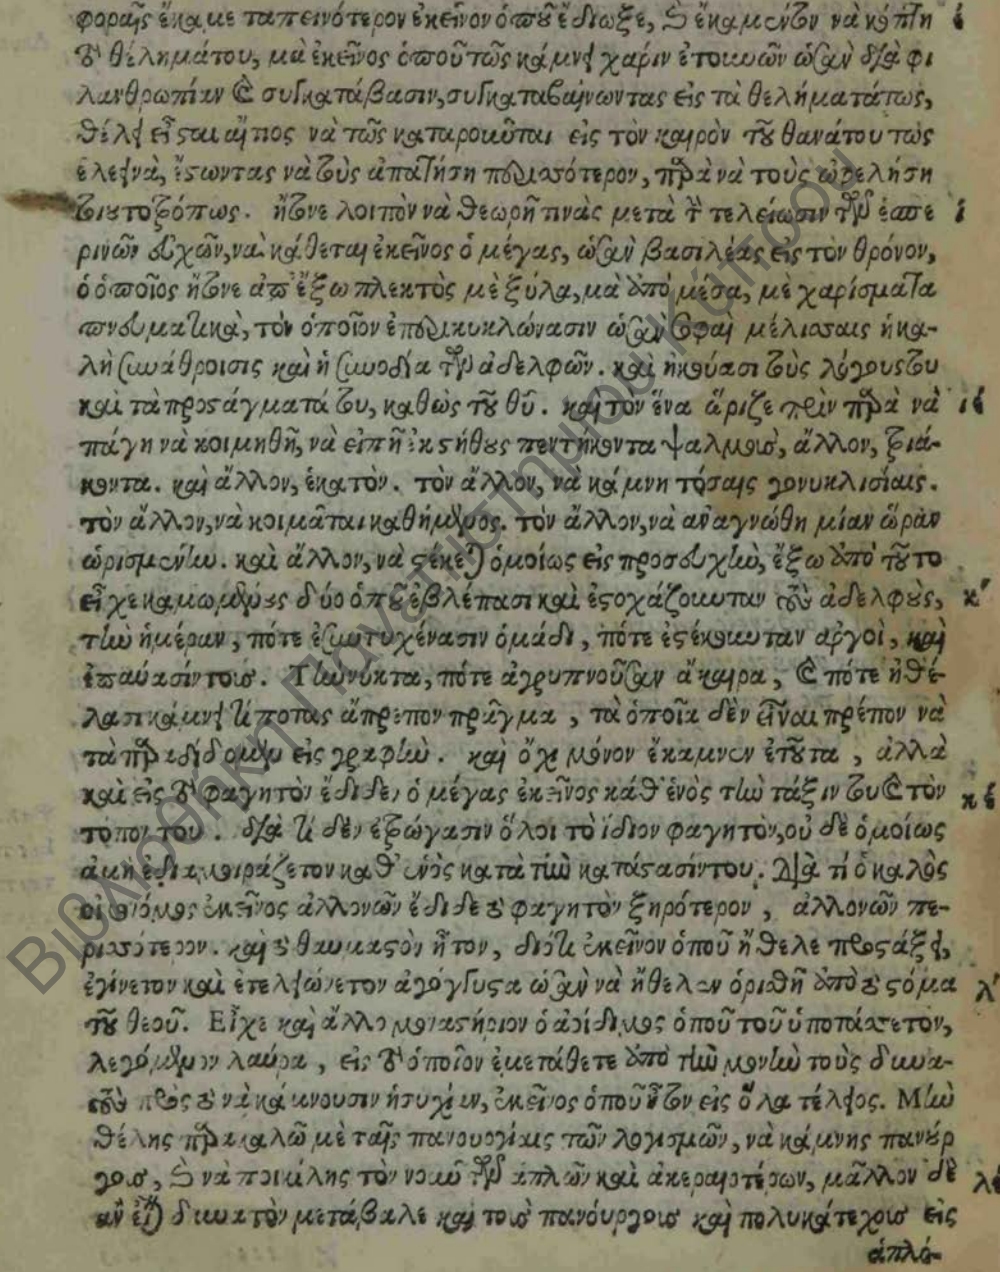 φοραῖς ἔκαμε ταπεινότερον ἐκεῖνον ὁποῦ ἔδιωξε, καὶ ἔκαμεν τὸν νὰ κόπτῃ
τὸ θέλημάτου, μὰ ἐκεῖνος ὁποῦ τῶς κάμνει χάριν ἐτουνῶν ὡσὰν διὰ φι
λανθρωπίαν καὶ συγκατάβασιν, συγκαταβαίνωντας εἰς τὰ θελήματάτως,
θέλει εἶσται αἴτιος νὰ τῶς καταροιῶνται εἰς τὸν καιρὸν τοῦ θανάτου τως
ἐλεεινὰ, ἔστωντας νὰ τοὺς ἀπατήσῃ περισσότερον, παρὰ νὰ τοὺς ὠφελήσῃ
τουτοτρόπως. ἤτονε λοιπὸν νὰ θεωρῇ τινὰς μετὰ τὴν τελείωσιν τῶν ἑσπε
ρινῶν εὐχῶν, νὰ κάθεται ἐκεῖνος ὁ μέγας, ὡσὰν βασιλέας εἰς τὸν θρόνον,
ὁ ὁποῖος ἤτονε ἀπ' ἔξω πλεκτὸς μὲ ξύλα, μὰ ἀπὸ μέσα, μὲ χαρίσματα
πνευματικὰ, τὸν ὁποῖον ἐπερικυκλώνασιν ὡσὰν σοφαὶ μέλισσαις ἡ κα-
λὴ συνάθροισις καὶ ἡ συνοδία τῶν ἀδελφῶν. καὶ ἠκούασι τοὺς λόγους του
καὶ τὰ προστάγματά του, καθὼς τοῦ θῦ. καὶ τὸν ἕνα ὥριζε πρὶν παρὰ νὰ ιέ
πάγῃ νὰ κοιμηθῇ, νὰ εἰπῇ ἐκ στήθους πεντήκοντα ψαλμοὺς, ἄλλον, τριά-
κοντα. καὶ ἄλλον, ἑκατὸν. τὸν ἄλλον, νὰ κάμνῃ τόσαις γονυκλισίαις.
τὸν ἄλλον, νὰ κοιμᾶται καθήμενος. τὸν ἄλλον, νὰ ἀναγνώθῃ μίαν ὥραν
ὡρισμένην. καὶ ἄλλον, νὰ στέκεται ὁμοίως εἰς προσευχὴν, ἔξω ἀπὸ τοῦτο
εἶχε καμωμένους δύο ὁποῦ ἐβλέπασι καὶ ἐστοχάζουνταν τοὺς ἀδελφοὺς, κ΄
τὴν ἡμέραν, πότε ἐσυντυχένασιν ὁμάδι, πότε ἐστέκουνταν ἀργοὶ, καὶ
ἐπαύασίν τους. Τὴν νύκτα, πότε ἀγρυπνοῦσαν ἄκαιρα, καὶ πότε ἠθέ-
λασι κάμνει τίποτας ἄπρεπον πρᾶγμα, τὰ ὁποῖα δὲν εἶναι πρέπον νὰ
τὰ παραδίδομεν εἰς γραφὴν. καὶ ὄχι μόνον ἔκαμνεν ἐτοῦτα, ἀλλὰ
καὶ εἰς τὸ φαγητὸν ἔδιδεν ὁ μέγας ἐκεῖνος κάθ' ἑνὸς τὴν τάξιν του καὶ τὸν κέ
τόπον του. διὰ τὶ δὲν ἐτρώγασιν ὅλοι τὸ ἴδιον φαγητὸν, οὐ δὲ ὁμοίως
ἀκη ἐδιαμοιράζετον καθ' ἑνὸς κατὰ τὴν κατάστασίντου. Διὰ τί ὁ καλὸς
οἰκονόμος ἐκεῖνος ἀλλονῶν ἔδιδε τὸ φαγητὸν ξηρότερον, ἀλλονῶν πε-
ρισσότερον. καὶ τὸ θαυμαστὸν ἦτον, διότι ἐκεῖνον ὁποῦ ἤθελε προστάξει,
ἐγίνετον καὶ ἐτελειώνετον ἀγόγγυστα ὡσὰν νὰ ἤθελεν ὁρισθῇ ἀπὸ τὸ στόμα λ΄
τοῦ θεοῦ. Εἶχε καὶ ἄλλο μοναστήριον ὁ ἀοίδιμος ὁποῦ τοῦ ὑποτάσσετον,
λεγόμενον λαύρα, εἰς τὸ ὁποῖον ἐμετάθετε ἀπὸ τὴν μονὴν τοὺς δυνα-
τοὺς πρὸς τὸ νὰ κάμνουσιν ἡσυχίαν, ἐκεῖνος ὁποῦ ἦτον εἰς ὅλα τέλειος. Μὴν
θέλῃς παρακαλῶ μὲ ταῖς πανουργίαις τῶν λογισμῶν, νὰ κάμνῃς πανούρ
γους, καὶ νὰ ποικίλῃς τὸν νοῦν τῶν ἁπλῶν καὶ ἀκεραιοτέρων, μᾶλλον δὲ λέ
ἂν εἶναι δυνατὸν μετάβαλε καὶ τοὺς πανούργους καὶ πολυκάτεχους εἰς
ἁπλό-
Βιβλιοθήκη Πανεπιστημίου Κύπρου